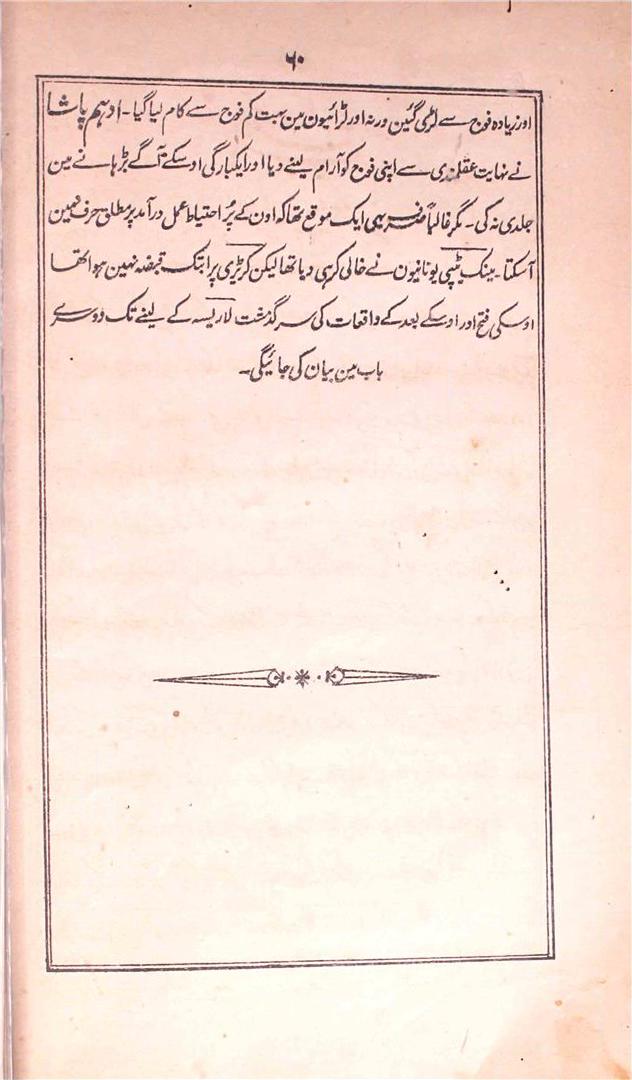 ۶۰
اور زیادہ فوج سے لڑی گئین ورنہ اور لڑائیون مین بہت کم فوج سے کام لیا گیا۔ ادہم پاشا
نے نہایت عقلمندی سے اپنی فوج کو آرام لینے دیا اور ایکبارگی اوسکے آگے بڑہانے مین
جلدی نہ کی۔ مگر غالباً صرف یہی ایک موقع تھا کہ اون کے پُر احتیاط عمل درآمد پر مطلق حرف نہین
آسکتا۔ مینک ٹپی یونانیون نے خالی کر ہی دیا تھا لیکن کریڑی پر ابتک قبضہ نہین ہوا تھا
اوسکی فتح اور اوسکے بعد کے واقعات، کی سرگذشت لاریسہ کے لینے تک دوسرے
باب مین بیان کی جائیگی۔